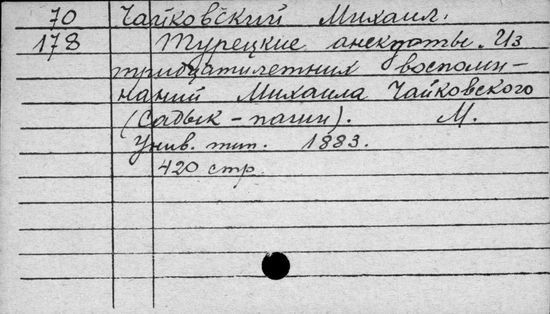 70 Чайковский Михаил.
178 Турецкие анекдоты. Из
тридцатилетних воспоми-
наний Михаила Чайковского
(Садык-паши). М.
Унив. тип. 1883.
420 стр.